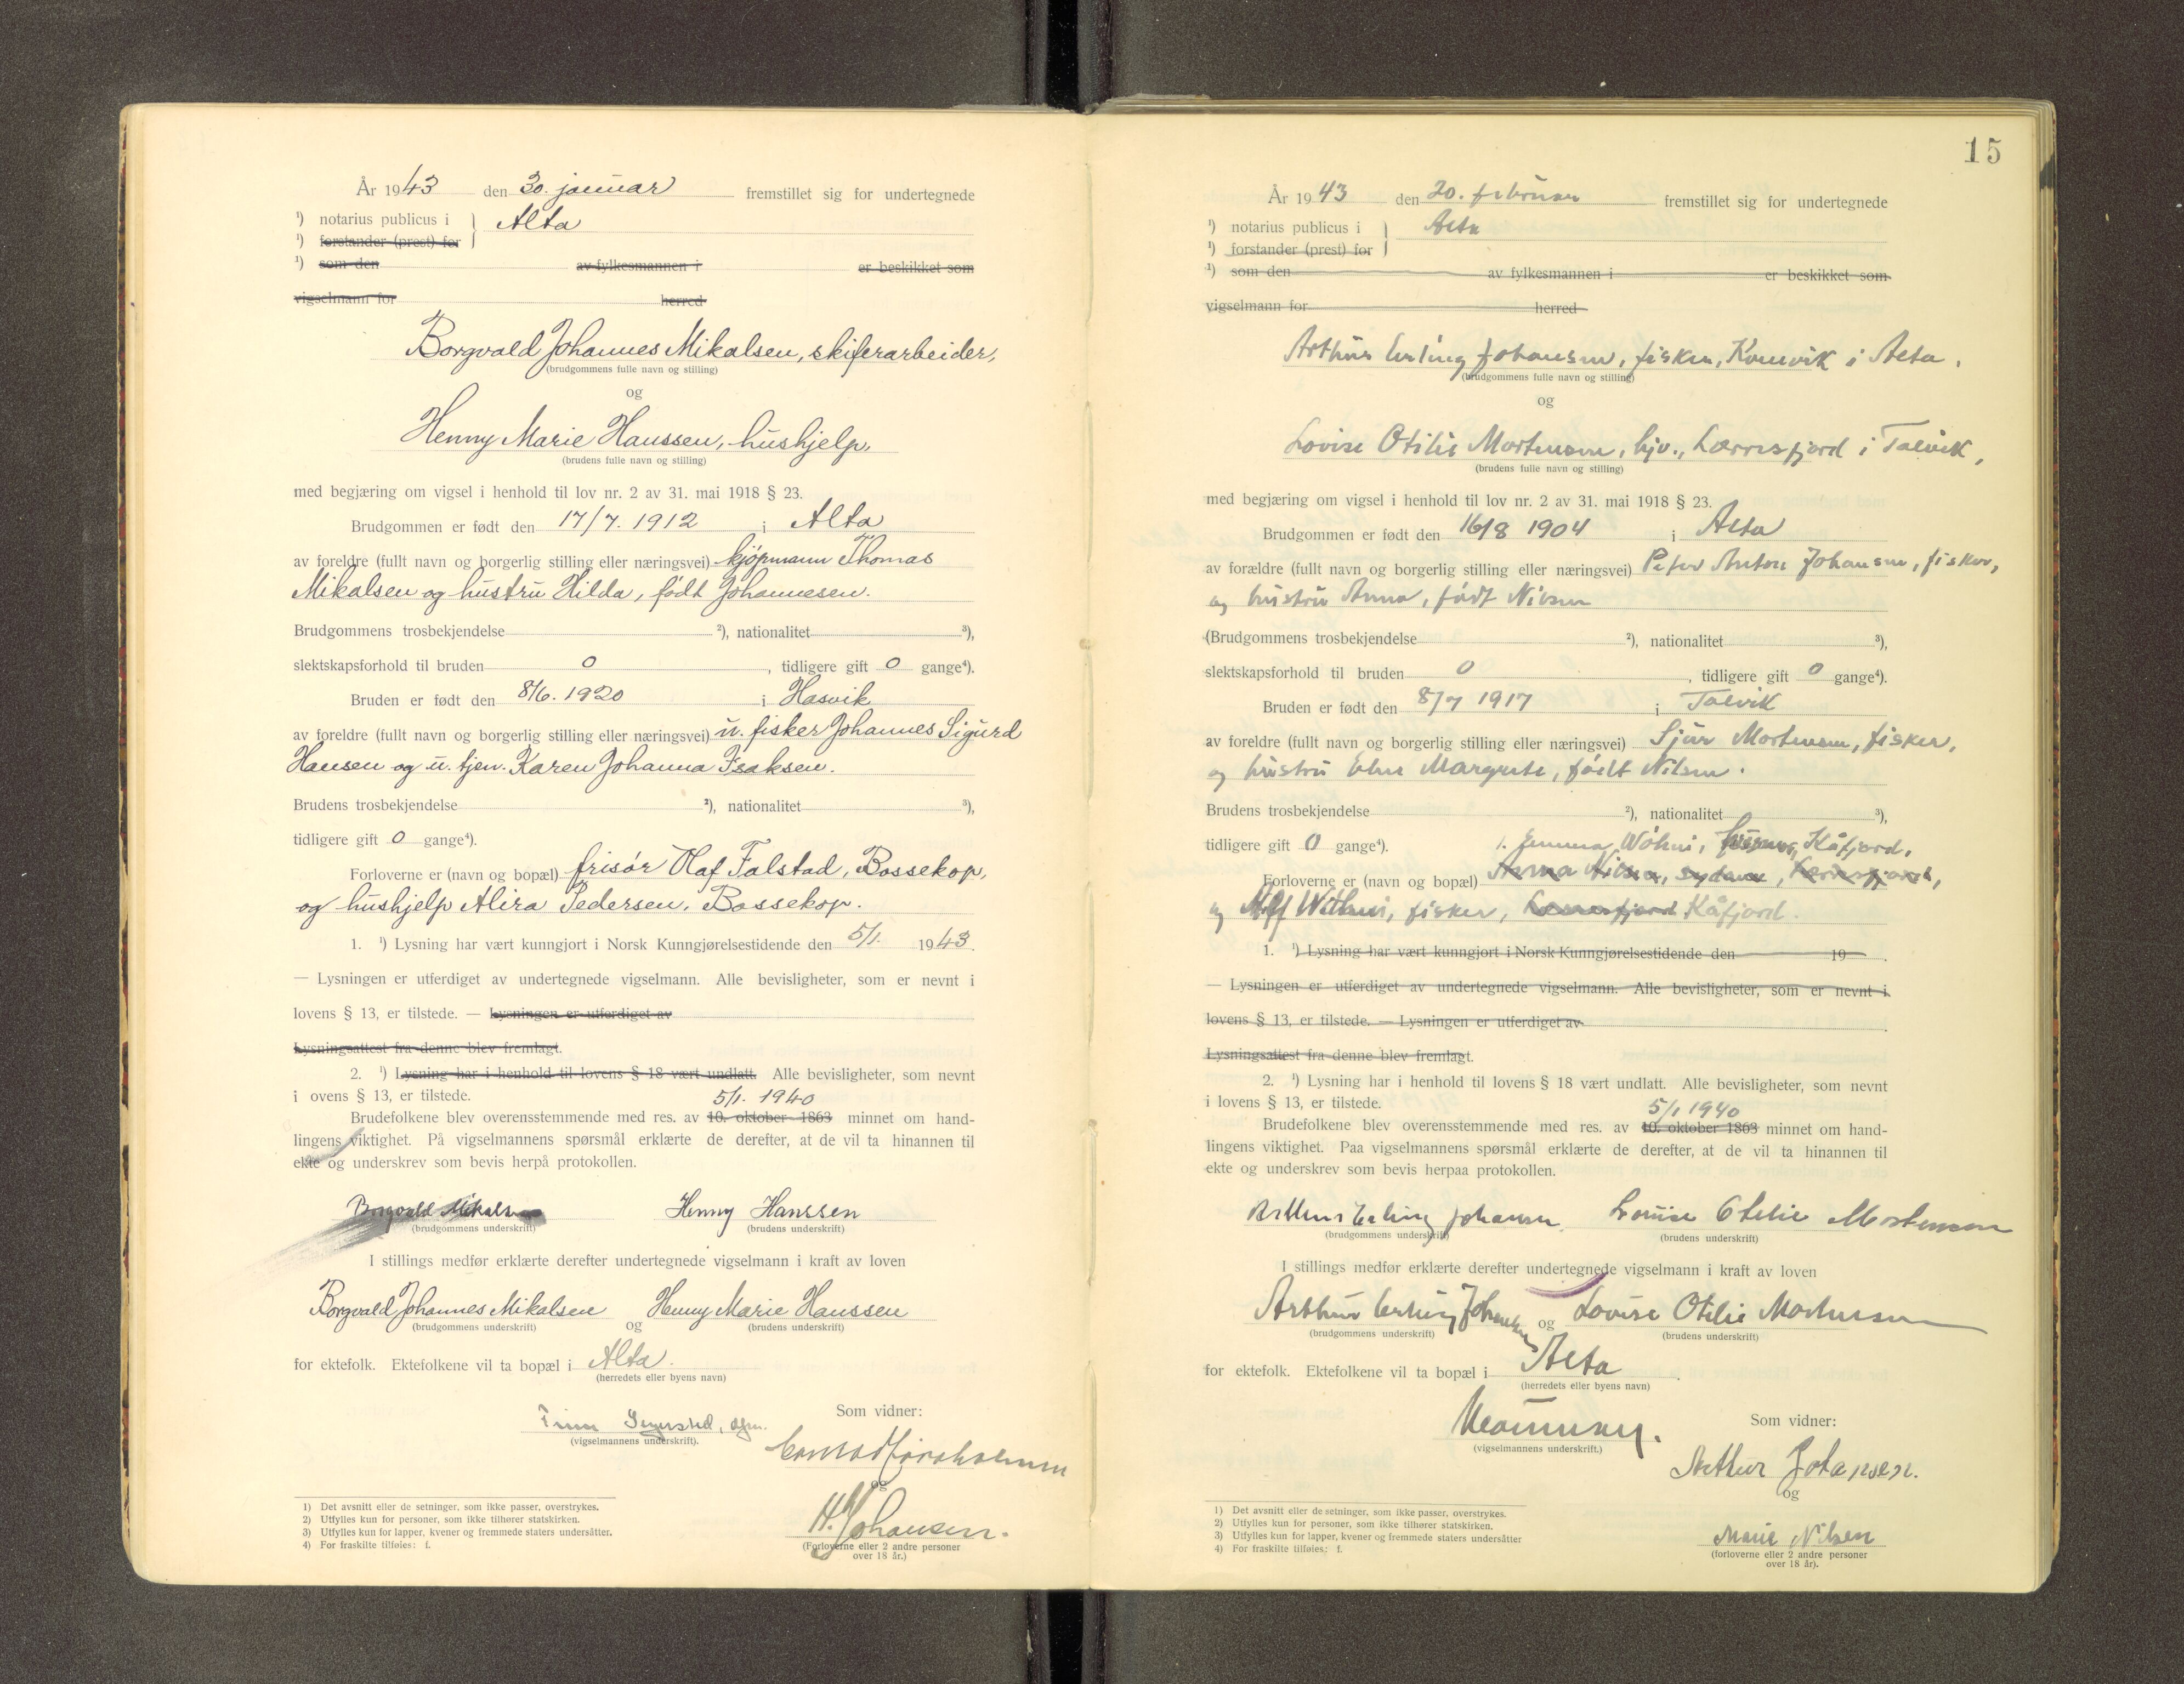 År 1943 den 30. januar fremstillet sig for undertegnede
¹) notarius publicus i } Alta
¹) forstander (prest) for
¹) som den av fylkesmannen i er beskikket som
vigselmann for herred
Borgvald Johannes Mikalsen, skiferarbeider,
(brudgommens fulle navn og stilling)
og
Henny Marie Hanssen, hushjelp,
(brudens fulle navn og stilling)
med begjæring om vigsel i henhold til lov nr. 2 av 31. mai 1918 § 23.
Brudgommen er født den 17/7. 1912 i Alta
av foreldre (fullt navn og borgerlig stilling eller næringsvei) kjøpmann Thomas
Mikalsen og hustru Hilda, født Johannesen.
Brudgommens trosbekjendelse ²), nationalitet ³),
slektskapsforhold til bruden 0, tidligere gift 0 gange⁴).
Bruden er født den 8/6. 1920 i Hasvik
av foreldre (fullt navn og borgerlig stilling eller næringsvei) u. fisker Johannes Sigurd
Hansen og u. tjen. Karen Johanna Isaksen.
Brudens trosbekjendelse ²), nationalitet ³),
tidligere gift 0 gange⁴).
Forloverne er (navn og bopæl) frisør Olaf Falstad, Bossekop,
og hushjelp Alira Pedersen, Bossekop.
1. ¹) Lysning har vært kunngjort i Norsk Kunngjørelsestidende den 5/1. 1943.
— Lysningen er utferdiget av undertegnede vigselmann. Alle bevisligheter, som er nevnt i
lovens § 13, er tilstede. — Lysningen er utferdiget av
Lysningsattest fra denne blev fremlagt.
2. ¹) Lysning har i henhold til lovens § 18 vært undlatt. Alle bevisligheter, som nevnt
i ovens § 13, er tilstede.
5/1. 1940
Brudefolkene blev overensstemmende med res. av 10. oktober 1863 minnet om hand-
lingens viktighet. På vigselmannens spørsmål erklærte de derefter, at de vil ta hinannen til
ekte og underskrev som bevis herpå protokollen.
Borgvald Mikalsen Henny Hanssen
(brudgommens underskrift) (brudens underskrift)
I stillings medfør erklærte derefter undertegnede vigselmann i kraft av loven
Borgvald Johannes Mikalsen og Henny Marie Hanssen
(brudgommens underskrift) (brudens underskrift)
for ektefolk. Ektefolkene vil ta bopæl i Alta.
(herredets eller byens navn)
Som vidner:
(vigselmannens underskrift).
og
H. Johansen.
(Forloverne eller 2 andre personer
over 18 år.)
1) Det avsnitt eller de setninger, som ikke passer, overstrykes.
2) Utfylles kun for personer, som ikke tilhører statskirken.
3) Utfylles kun for lapper, kvener og fremmede staters undersåtter.
4) For fraskilte tilføies: f.
15
År 1943 den 20. februar fremstillet sig for undertegnede
¹) notarius publicus i } Alta
¹) forstander (prest) for
¹) som den av fylkesmannen i er beskikket som
vigselmann for herred
Arthur Erling Johansen, fisker, Komvik i Alta,
(brudgommens fulle navn og stilling)
og
Lovise Otilie Mortensen, hjv., Lerresfjord i Talvik,
(brudens fulle navn og stilling)
med begjæring om vigsel i henhold til lov nr. 2 av 31. mai 1918 § 23.
Brudgommen er født den 16/8 1904 i Alta
av forældre (fullt navn og borgerlig stilling eller næringsvei) Peter Anton Johansen, fisker,
og hustru Anna, født Nilsen
(Brudgommens trosbekjendelse ²), nationalitet ³),
slektskapsforhold til bruden 0, tidligere gift 0 gange⁴).
Bruden er født den 8/7 1917 i Talvik
av foreldre (fullt navn og borgerlig stilling eller næringsvei) Sjur Mortensen, fisker,
og hustru Elen Margrete, født Nilsen.
Brudens trosbekjendelse ²), nationalitet ³),
tidligere gift 0 gange⁴). Kåfjord,
Forloverne er (navn og bopæl) Anna Nilsen,
og fisker, Kåfjord.
1. ¹) Lysning har vært kunngjort i Norsk Kunngjørelsestidende den 19 .
— Lysningen er utferdiget av undertegnede vigselmann. Alle bevisligheter, som er nevnt i
lovens § 13, er tilstede. — Lysningen er utferdiget av .
Lysningsattest fra denne blev fremlagt.
2. ¹) Lysning har i henhold til lovens § 18 vært undlatt. Alle bevisligheter, som nevnt
i lovens § 13, er tilstede.
5/1 1940
Brudefolkene blev overensstemmende med res. av 10. oktober 1863 minnet om hand-
lingens viktighet. Paa vigselmannens spørsmål erklærte de derefter, at de vil ta hinannen til
ekte og underskrev som bevis herpaa protokollen.
Arthur Erling Johansen Lovise Otelie Mortensen
(brudgommens underskrift) (brudens underskrift)
I stillings medfør erklærte derefter undertegnede vigselmann i kraft av loven
Arthur Erling Johansen og Lovise Otilie Mortensen
(brudgommens underskrift) (brudens underskrift)
for ektefolk. Ektefolkene vil ta bopæl i Alta.
(herredets eller byens navn)
Som vidner:
(vigselmannens underskrift.)
Arthur Johansen.
og
Marie Nilsen
(forloverne eller 2 andre personer
over 18 år).
1) Det avsnitt eller de setninger, som ikke passer, overstrykes.
2) Utfylles kun for personer, som ikke tilhører statskirken.
3) Utfylles kun for lapper, kvener og fremmede staters undersåtter
4) For fraskilte tilføies: f.